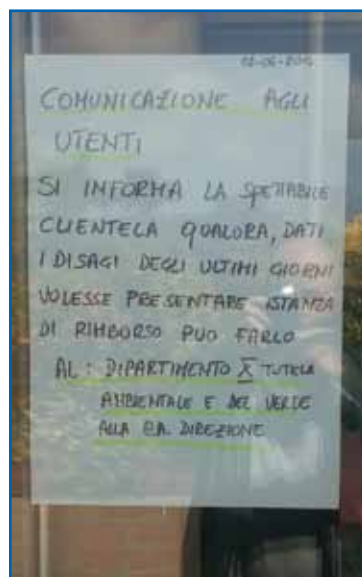 COMUNICAZIONE AGLI
UTENTI
SI INFORMA LA SPETTABILE
CLIENTELA QUALORA, DATI
I DISAGI DEGLI ULTIMI GIORNI
VOLESSE PRESENTARE ISTANZA
DI RIMBORSO PUO FARLO
AL: DIPARTIMENTO X TUTELA
AMBIENTALE E DEL VERDE
ALLA C.A. DIREZIONE